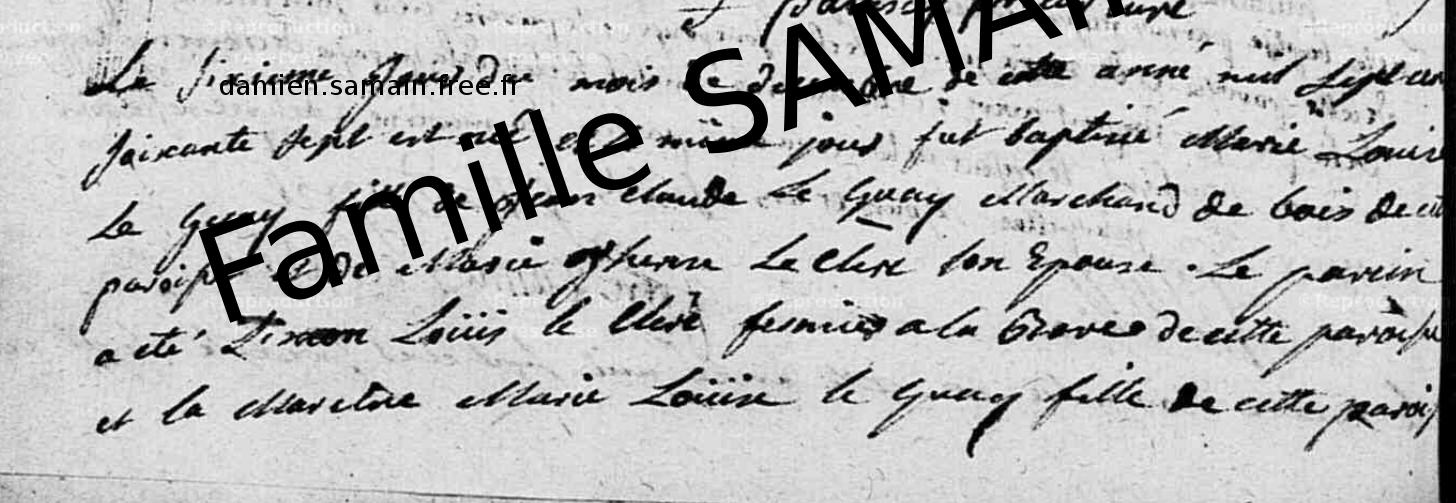 Le sixieme jour du mois de decembre de cette anné mil sept cen
soixante sept est né et le même jour fut baptisé Marie Louise
Le Quay fille de Jean Claude Le Quay Marchand de bois de cette
paroisse et de Marie Le Clerc son Epouse . Le parein
a eté Simon Loüis le Clerc fermier a la de cette paroisse
et la Mareine Marie Loüise le Quay fille de cette paroiss
damien.samain.free.fr
Famille SAMAIN